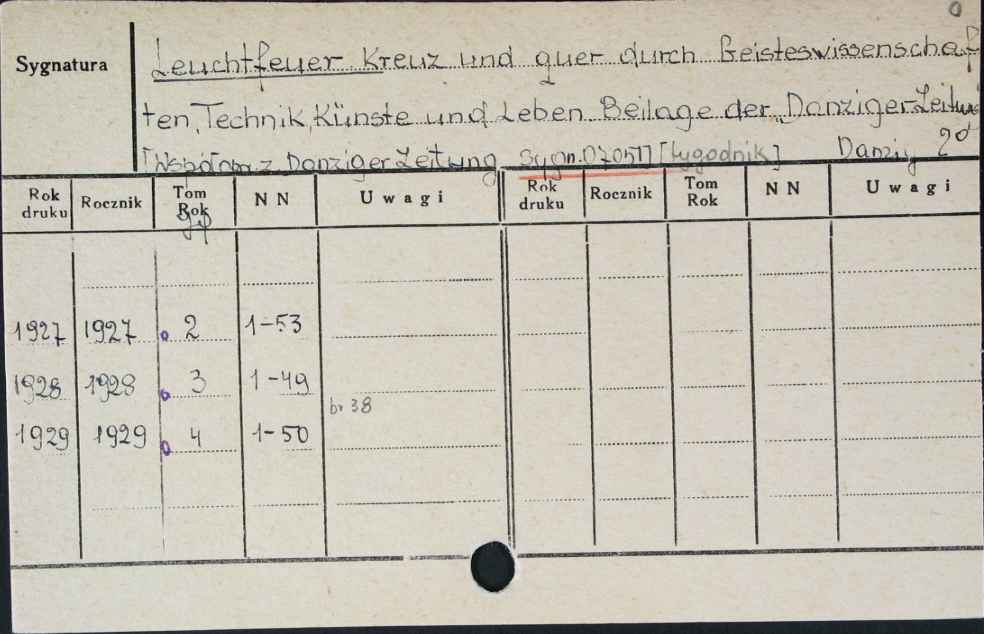 0
Sygnatura
Leuchtfeuer Kreuz und quer durch Geisteswissenschaf
ten, Technik, Künste und Leben. Beilage der „Danziger Zeitung
[Współopr. z Danziger Zeitung Sygn. 07051] [tygodnik] Danzig 2°
Rok druku Rocznik Tom Rok N N Uwagi Rok druku Rocznik Tom Rok N N Uwagi
1927 1927 2 1-53
1928 1928 3 1-49
br 38
1929 1929 4 1-50